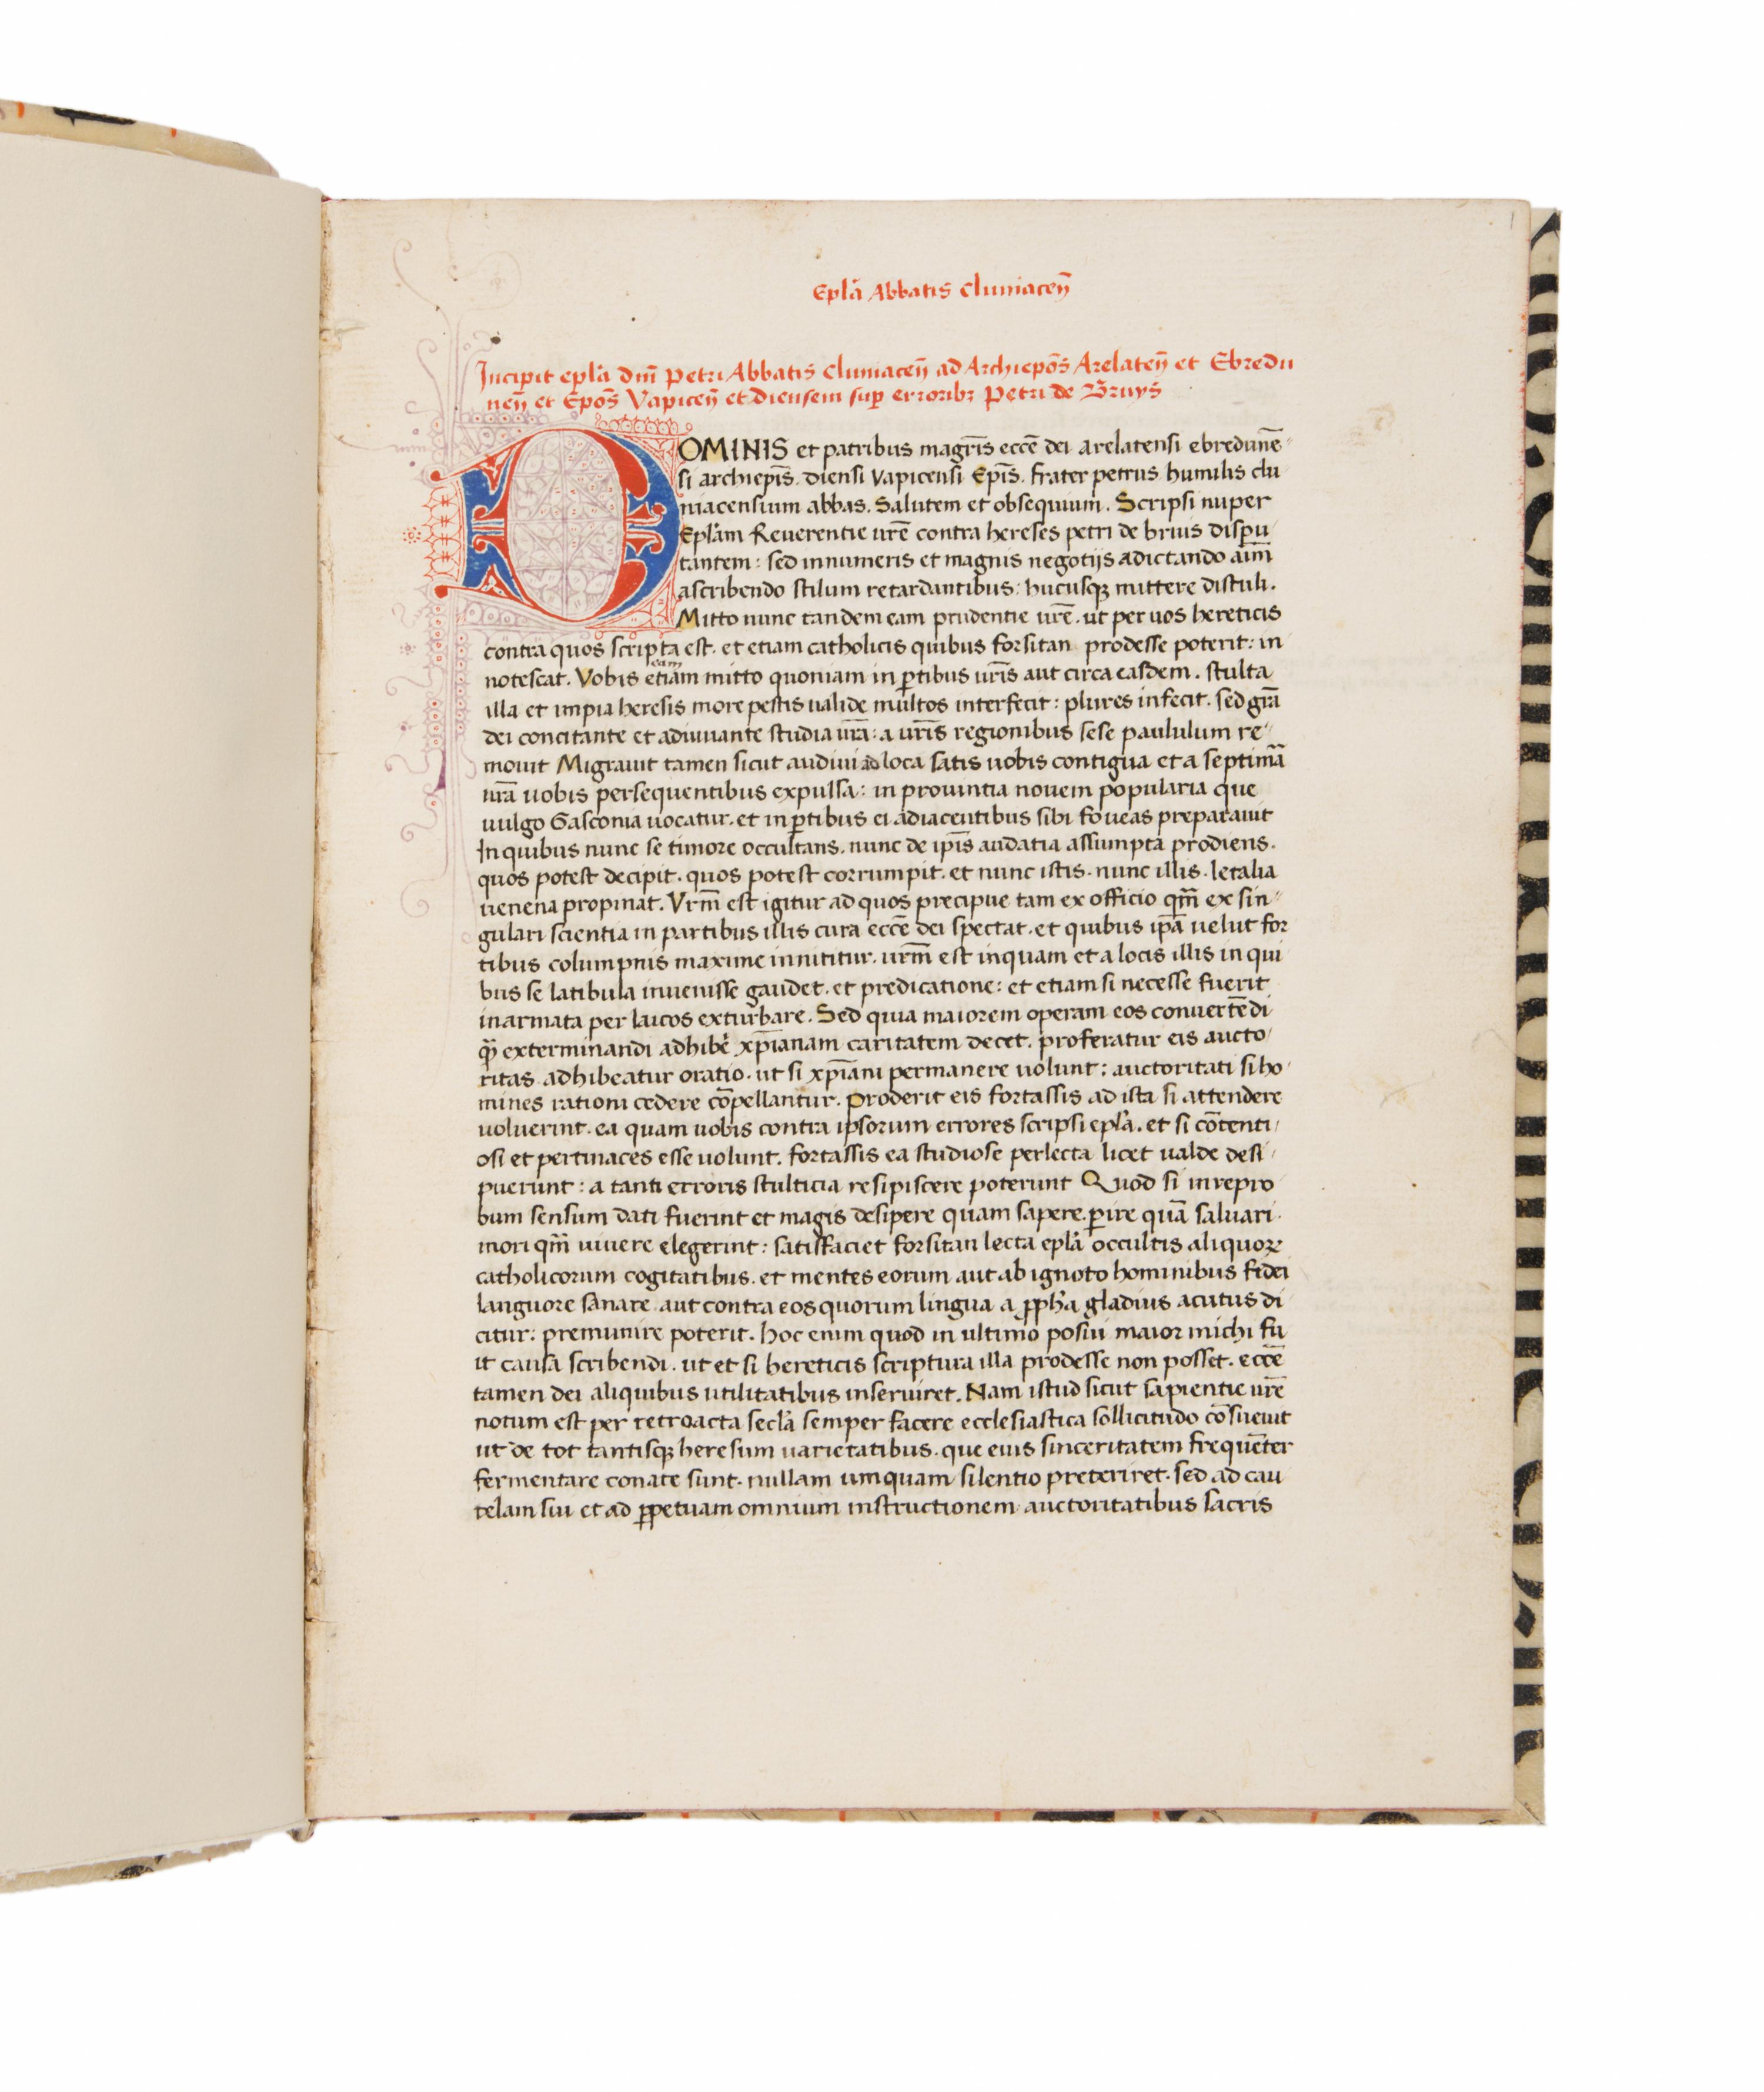 Epła Abbatis Cluniaceñ
Incipit epła dm̄ Petri Abbatis Cluniaceñ ad Archiepōs Arelateñ et Ebredu
neñ et Epōs Vapiceñ et diensem sup erroribꝫ Petri de Bruys
DOMINIS et patribus magrīs eccē dei arelatensi ebredunē-
si archiepīs. diensi vapicensi Epīs. frater petrus humilis clu
niacensium abbas. Salutem et obsequium. Scripsi nuper
Epłam Reuerentie vrē contra hereses petri de bruis dispu
tantem: sed innumeris et magnis negotijs adictando aīm
ascribendo stilum retardantibus: hucusqꝫ mittere distuli.
Mitto nunc tandem eam prudentie vrē. ut per uos hereticis
contra quos scripta est. et etiam catholicis quibus forsitan prodesse poterit: in
notescat. Vobis etiam eam mitto quoniam in ꝑtibus urīs aut circa easdem. stulta
illa et impia heresis more pestis ualide multos interfecit: plures infecit. sed grā
dei concitante et adiuuante studia urā: a urīs regionibus sese paululum re-
mouit Migrauit tamen sicut audiui ad loca satis uobis contigua et a septimā
urā uobis persequentibus expulsa: in prouintia nouem popularia que
uulgo Gasconia uocatur. et in ꝑtibus ei adiacentibus sibi foueas preparauit
In quibus nunc se timore occultans. nunc de ipīs audatia assumpta prodiens.
quos potest decipit. quos potest corrumpit. et nunc istis. nunc illis. letalia
uenena propinat. Vrm̄ est igitur ad quos precipue tam ex officio qm̄ ex sin-
gulari scientia in partibus illis cura eccē dei spectat. et quibus ipā uelut for
tibus columpnis maxime innititur. urm̄ est inquam et a locis illis in qui
bus se latibula inuenisse gaudet. et predicatione: et etiam si necesse fuerit
inarmata per laicos exturbare. Sed quia maiorem operam eos conuertēdi
qꝫ exterminandi adhibē xp̄ianam caritatem decet. proferatur eis aucto-
ritas adhibeatur oratio. ut si xp̄iani permanere uolunt: auctoritati si ho-
mines rationi cedere cōpellantur. Proderit eis fortassis ad ista si attendere
uoluerint. ea quam uobis contra ipsorum errores scripsi epła. et si cōtenti-
osi et pertinaces esse uolunt. fortassis ea studiose perlecta licet ualde desi-
puerunt: a tanti erroris stulticia resipiscere poterunt Quod si in repro
bum sensum dati fuerint et magis desipere quam sapere. ꝑire quā saluari.
mori qm̄ uiuere elegerint: satisfaciet forsitan lecta epła occultis aliquoꝝ
catholicorum cogitatibus. et mentes eorum aut ab ignoto hominibus fidei
languore sanare. aut contra eos quorum lingua a ꝓpha gladius acutus di
citur: premunire poterit. hoc enim quod in ultimo posui maior michi fu
it causa scribendi. ut et si hereticis scriptura illa prodesse non posset. eccē
tamen dei aliquibus utilitatibus inseruiret. Nam istud sicut sapientie urē
notum est per retroacta secła semper facere ecclesiastica sollicitudo cōsueuit
ut de tot tantisqꝫ heresum uarietatibus. que eius sinceritatem frequēter
fermentare conate sunt. nullam umquam silentio preteriret. sed ad cau
telam sui et ad ꝑpetuam omnium instructionem auctoritatibus sacris